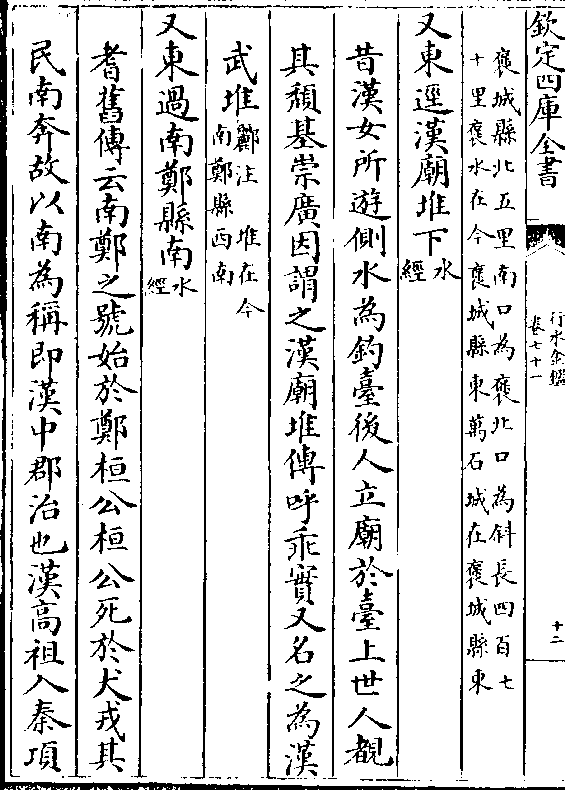 欽定四庫全書
行水金鑑
卷七十一
十二
褒城縣北五里南口為褒北口為斜長四百七
十里褒水在今褒城縣東萬石城在褒城縣東
又東逕漢廟堆下水經
昔漢女所遊側水為釣臺後人立廟於臺上世人覩
其頹基崇廣因謂之漢廟堆傳呼乖實又名之為漢
武堆酈注 堆在今南鄭縣西南
又東過南鄭縣南水經
耆舊傳云南鄭之號始於鄭桓公桓公死於犬戎其
民南奔故以南為稱即漢中郡治也漢高祖入秦項